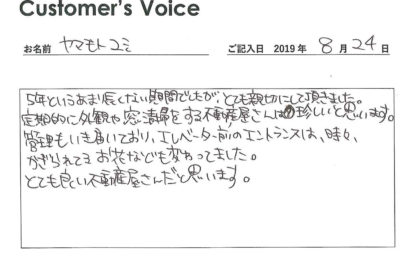 Customer's Voice
お名前 ヤマモトユミ ご記入日 2019年 8月24日
5年というあまり長くない期間でしたが、とても親切にして頂きました。
定期的に外観や窓清掃をする不動産屋さんは珍しいと思います。
管理もいき届いており、エレベーター前のエントランスは、時々、
かざられてるお花なども変わってました。
とても良い不動産屋さんだと思います。